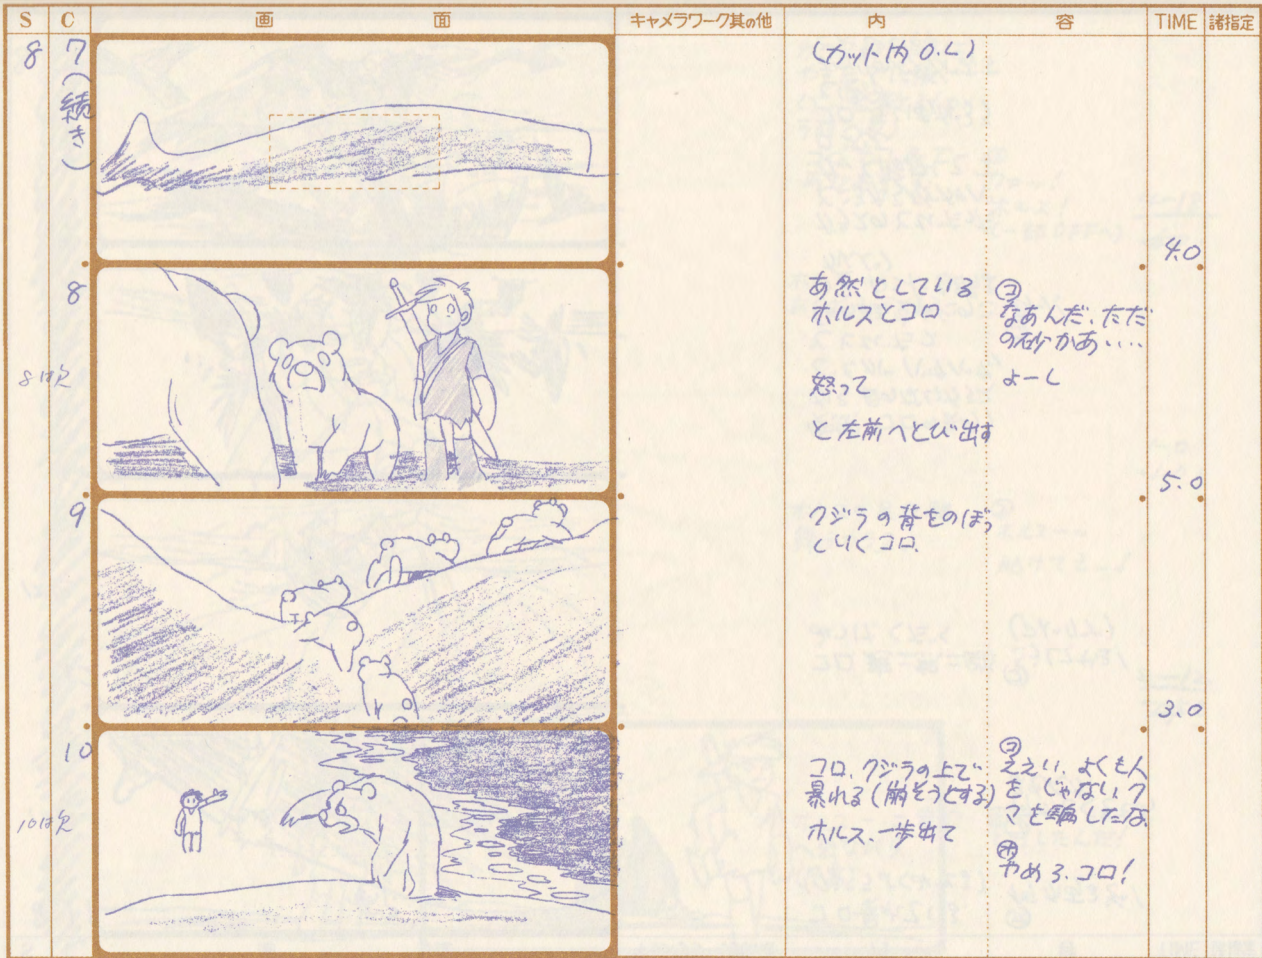 S C 画 面 キャメラワーク其の他 内 容 TIME 諸指定
8 7(続き)
(カット内 O.L)
4.0
8
あ然としている
ホルスとコロ
怒って
と左前へとび出す
㋙
なあんだ、ただ
の砂かあ・・・
よーし
5.0
9
クジラの背をのぼっ
ていくコロ
3.0
10
コロ、クジラの上で
暴れる(崩そうとする)
ホルス、一歩出て
㋙
ええい、よくも人
を じゃない、ク
マを騙したな
㋭
やめろ、コロ!